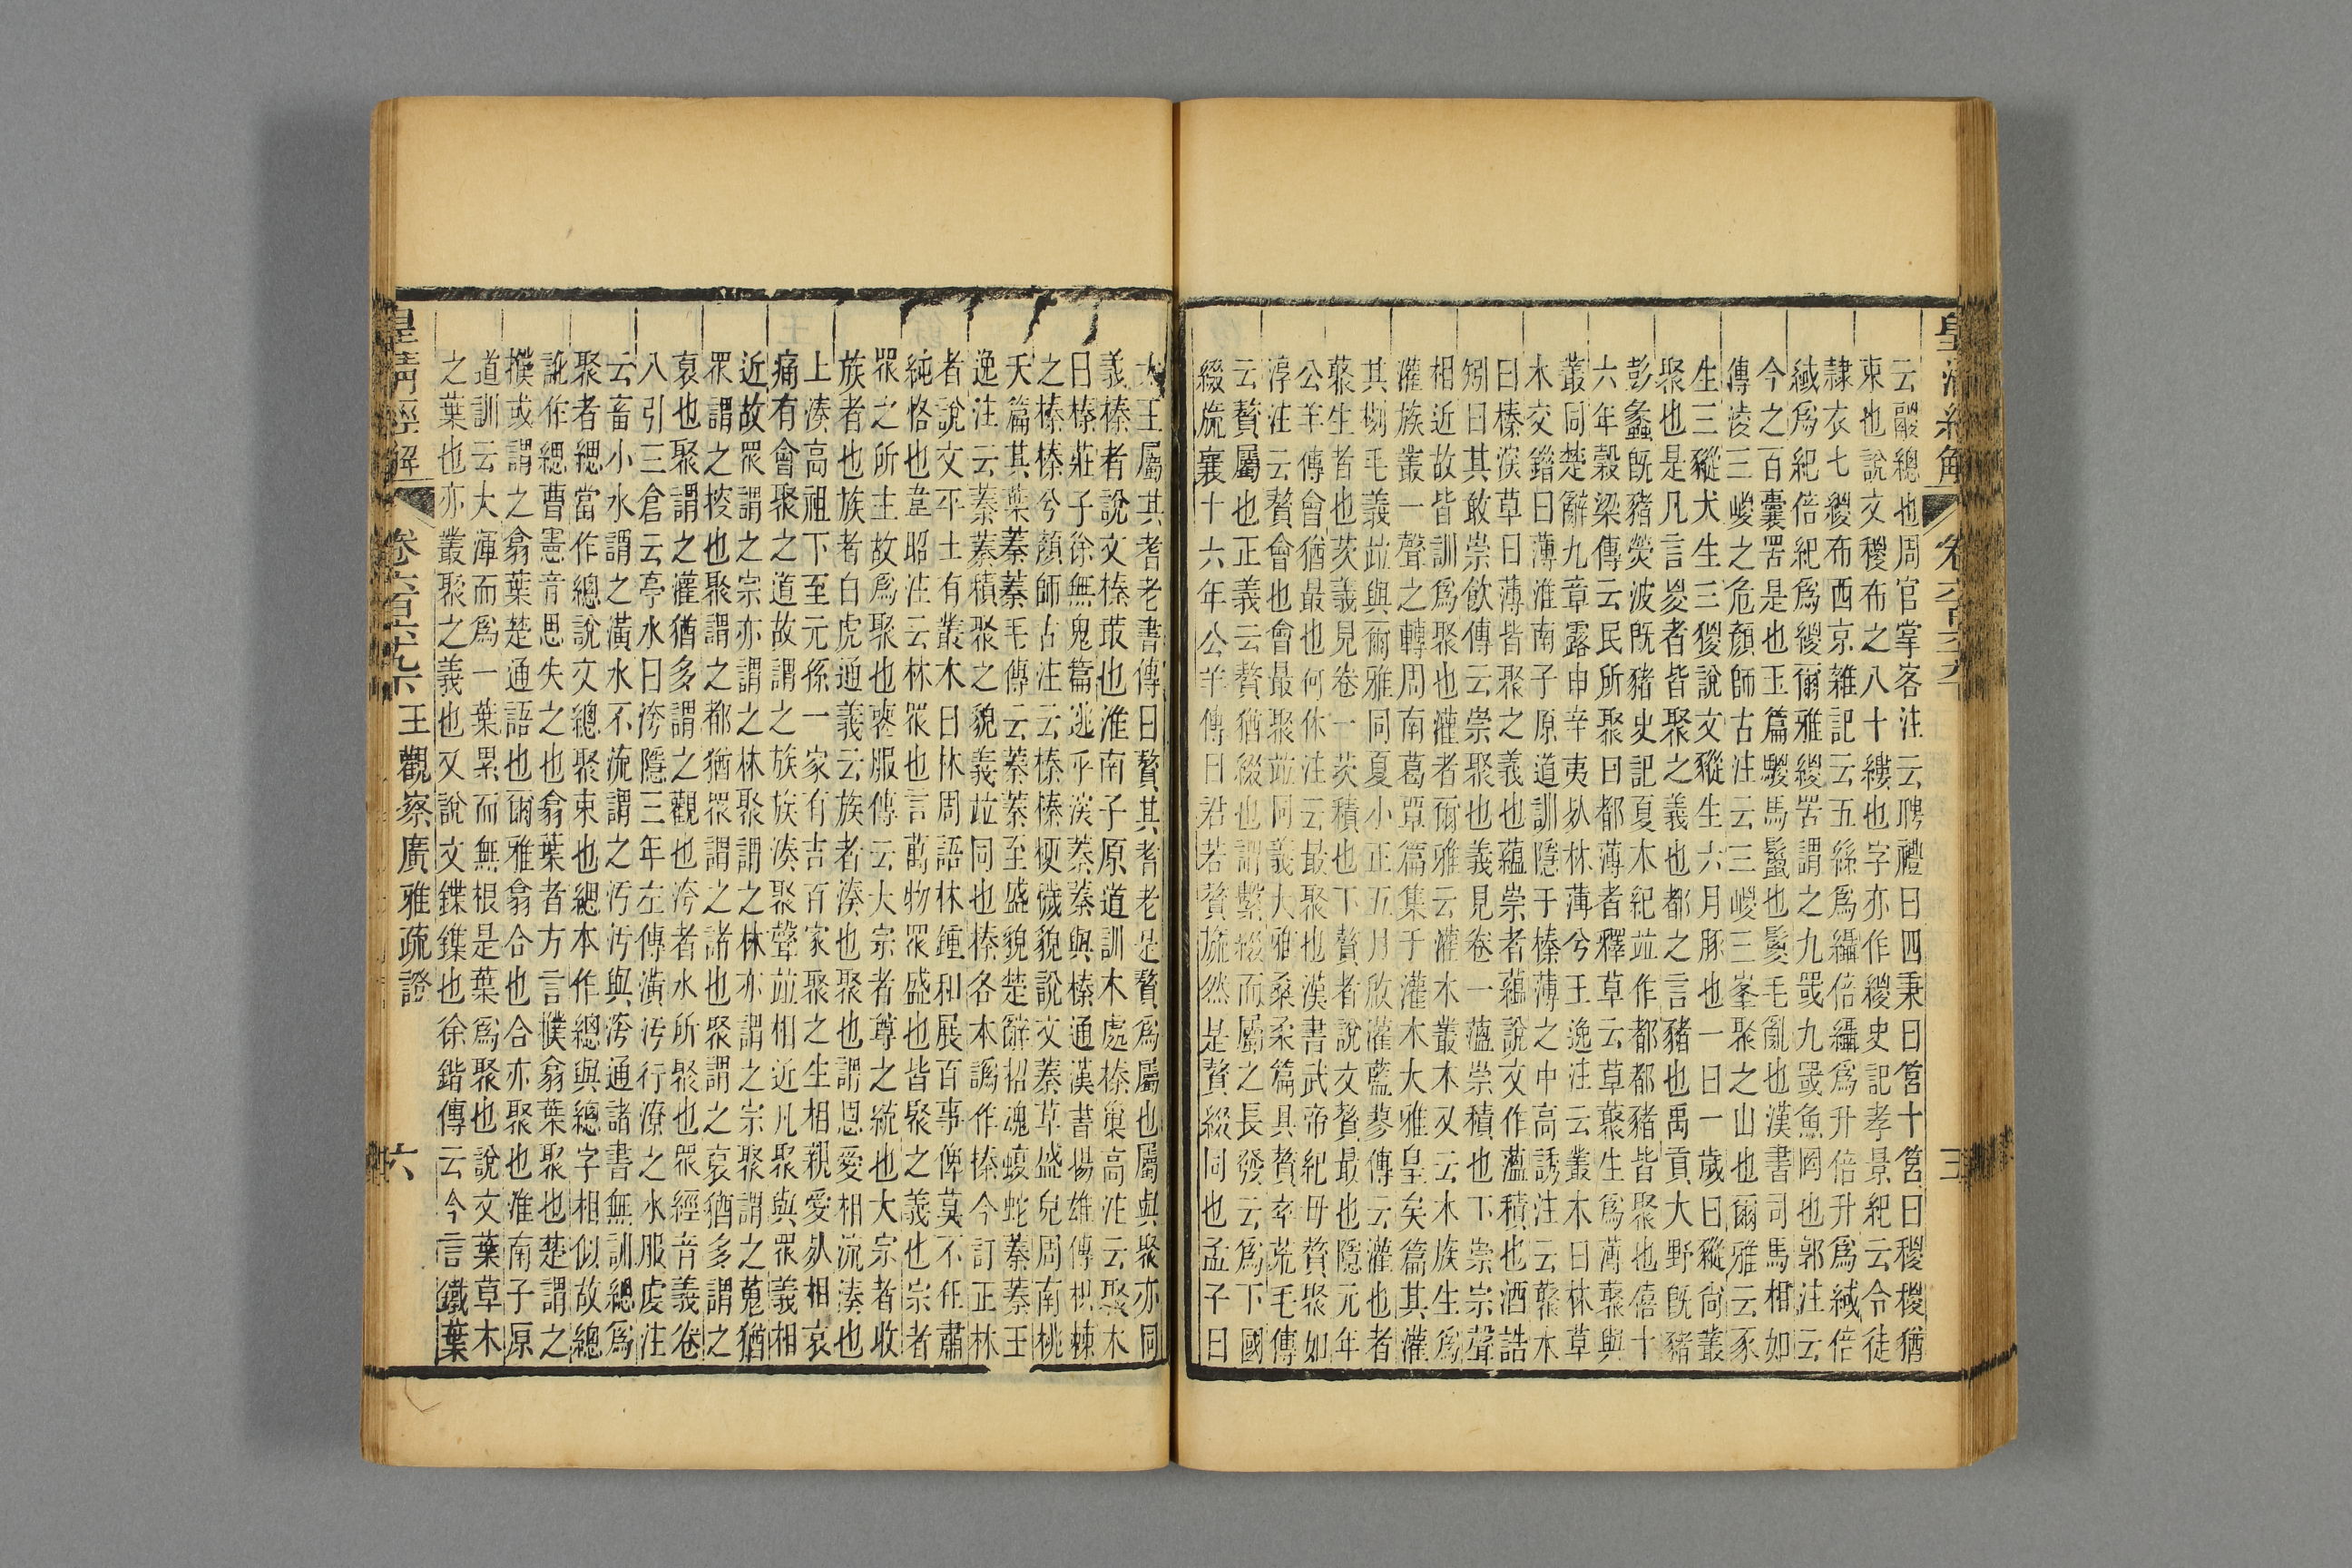 皇清經解 卷六百六十九
云鬷總也周官掌客注云聘禮曰四秉曰筥十筥曰稯稯猶
束也說文稯布之八十縷也字亦作緵史記孝景紀云令徒
隸衣七緵布西京雜記云五絲爲䌰倍䌰爲升倍升爲緎倍
緎爲紀倍紀爲緵爾雅緵罟謂之九罭九罭魚罔也郭注云
今之百囊罟是也玉篇騣馬鬣也鬉毛亂也漢書司馬相如
傳淩三嵏之危顏師古注云三嵏三峯聚之山也爾雅云豕
生三豵犬生三猣說文豵生六月豚也一曰一歲曰豵尙叢
聚也是凡言嵏者皆聚之義也都之言豬也禹貢大野旣豬
彭蠡旣豬熒波旣豬史記夏本紀竝作都都豬皆聚也僖十
六年穀梁傳云民所聚曰都薄者釋草云草藂生爲薄藂與
叢同楚辭九章露申辛夷死林薄兮王逸注云叢木曰林草
木交錯曰薄淮南子原道訓隱于榛薄之中高誘注云藂木
曰榛深草曰薄皆聚之義也蘊崇者蘊說文作薀積也酒誥
矧曰其敢崇飮傳云崇聚也義見卷一薀崇積也下崇宗聲
相近故皆訓爲聚也灌者爾雅云灌木叢木又云木族生爲
灌族叢一聲之轉周南葛覃篇集于灌木大雅皇矣篇其灌
其栵毛義竝與爾雅同夏小正五月啟灌藍蓼傳云灌也者
藂生者也茨義見卷一茨積也下贅者說文贅最也隱元年
公羊傳會猶最也何休注云最聚也漢書武帝紀毋贅聚如
淳注云贅會也會最聚竝同義大雅桑柔篇具贅卒荒毛傳
云贅屬也正義云贅猶綴也謂繫綴而屬之長發云爲下國
綴旒襄十六年公羊傳曰君若贅旒然是贅綴同也孟子曰
太王屬其耆老書傳曰贅其耆老是贅爲屬也屬與聚亦同
義榛者說文榛菆也淮南子原道訓木處榛巢高注云聚木
曰榛莊子徐無鬼篇逃乎深蓁蓁與榛通漢書揚雄傳枳棘
之榛榛兮顏師古注云榛榛梗穢貌說文蓁草盛皃周南桃
夭篇其葉蓁蓁毛傳云蓁蓁至盛貌楚辭招魂蝮蛇蓁蓁王
逸注云蓁蓁積聚之貌義竝同也榛各本譌作搸今訂正林
者說文平土有叢木曰林周語林鍾和展百事俾莫不任肅
純恪也韋昭注云林眾也言萬物眾盛也皆聚之義也宗者
眾之所主故爲聚也喪服傳云大宗者尊之統也大宗者收
族者也族者白虎通義云族者湊也聚也謂恩愛相流湊也
上湊高祖下至元孫一家有吉百家聚之生相親愛死相哀
痛有會聚之道故謂之族族湊聚聲竝相近凡聚與眾義相
近故眾謂之宗亦謂之林聚謂之林亦謂之宗聚謂之蒐猶
眾謂之搜也聚謂之都猶眾謂之諸也聚謂之裒猶多謂之
裒也聚謂之灌猶多謂之觀也洿者水所聚也眾經音義卷
八引三倉云亭水曰洿隱三年左傳潢汙行潦之水服虔注
云畜小水謂之潢水不流謂之汙汙與洿通諸書無訓總爲
聚者緦當作總說文總聚束也緫本作總與緦字相似故總
訛作緦曹憲音思失之也翕葉者方言撲翕葉聚也楚謂之
撲或謂之翕葉楚通語也爾雅翕合也合亦聚也淮南子原
道訓云大渾而爲一葉累而無根是葉爲聚也說文葉草木
之葉也亦叢聚之義也又說文鍱鏶也徐鍇傳云今言鐵葉
皇清經解 卷六百六十九下 王觀察廣雅疏證 六